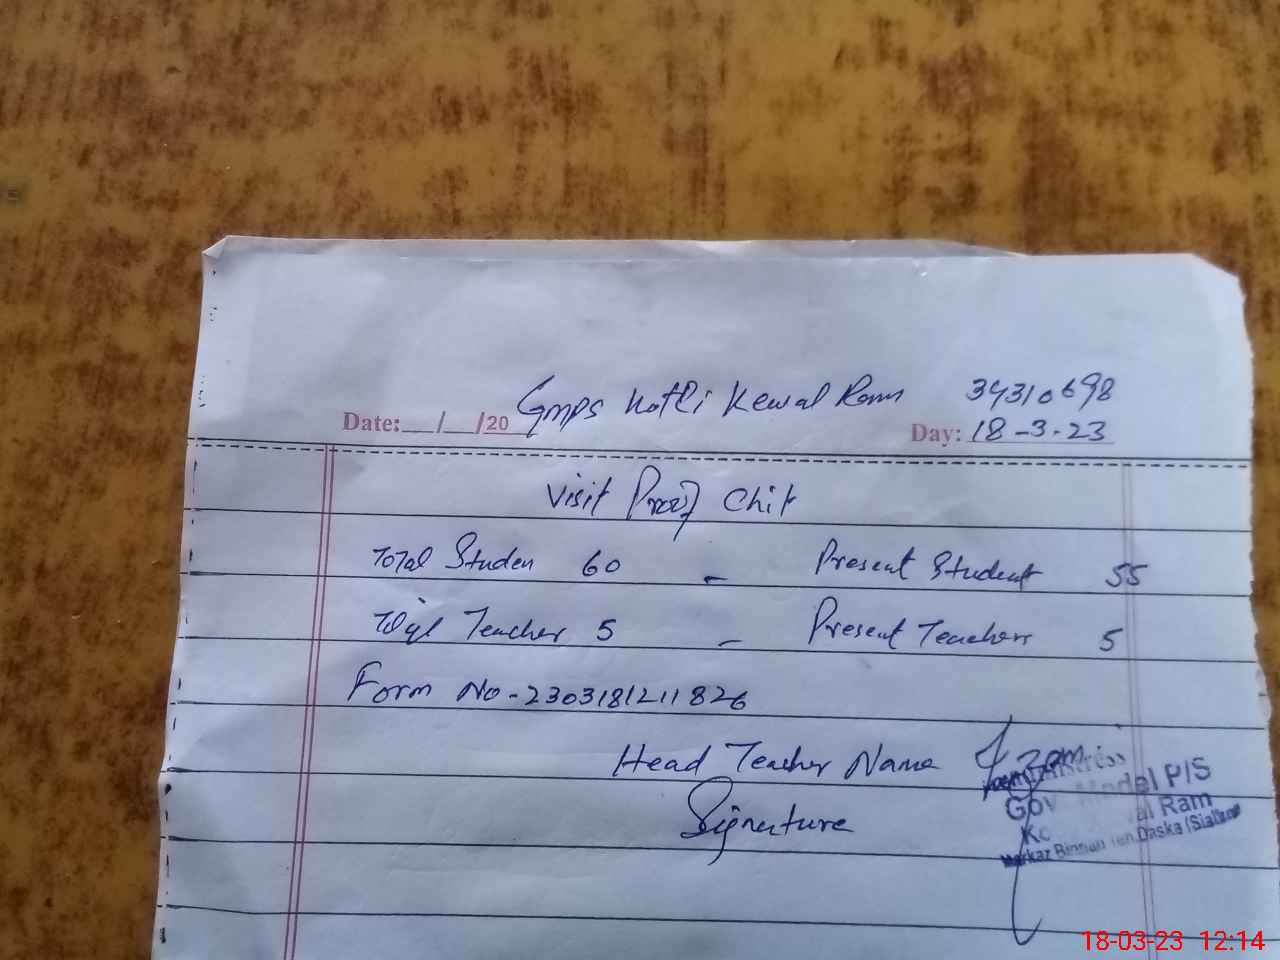 Gmps Kotli Kewal Ram 34310698
Date:__/__/20__ Day: 18-3-23
Visit Proof Chit
Total Studen 60 - Present Student 55
Teacher 5 - Present Teachers 5
Form No-2303181211826
Head Teacher Name
Signature
Model P/S
Ram
Markaz Daska
18-03-23 12:14